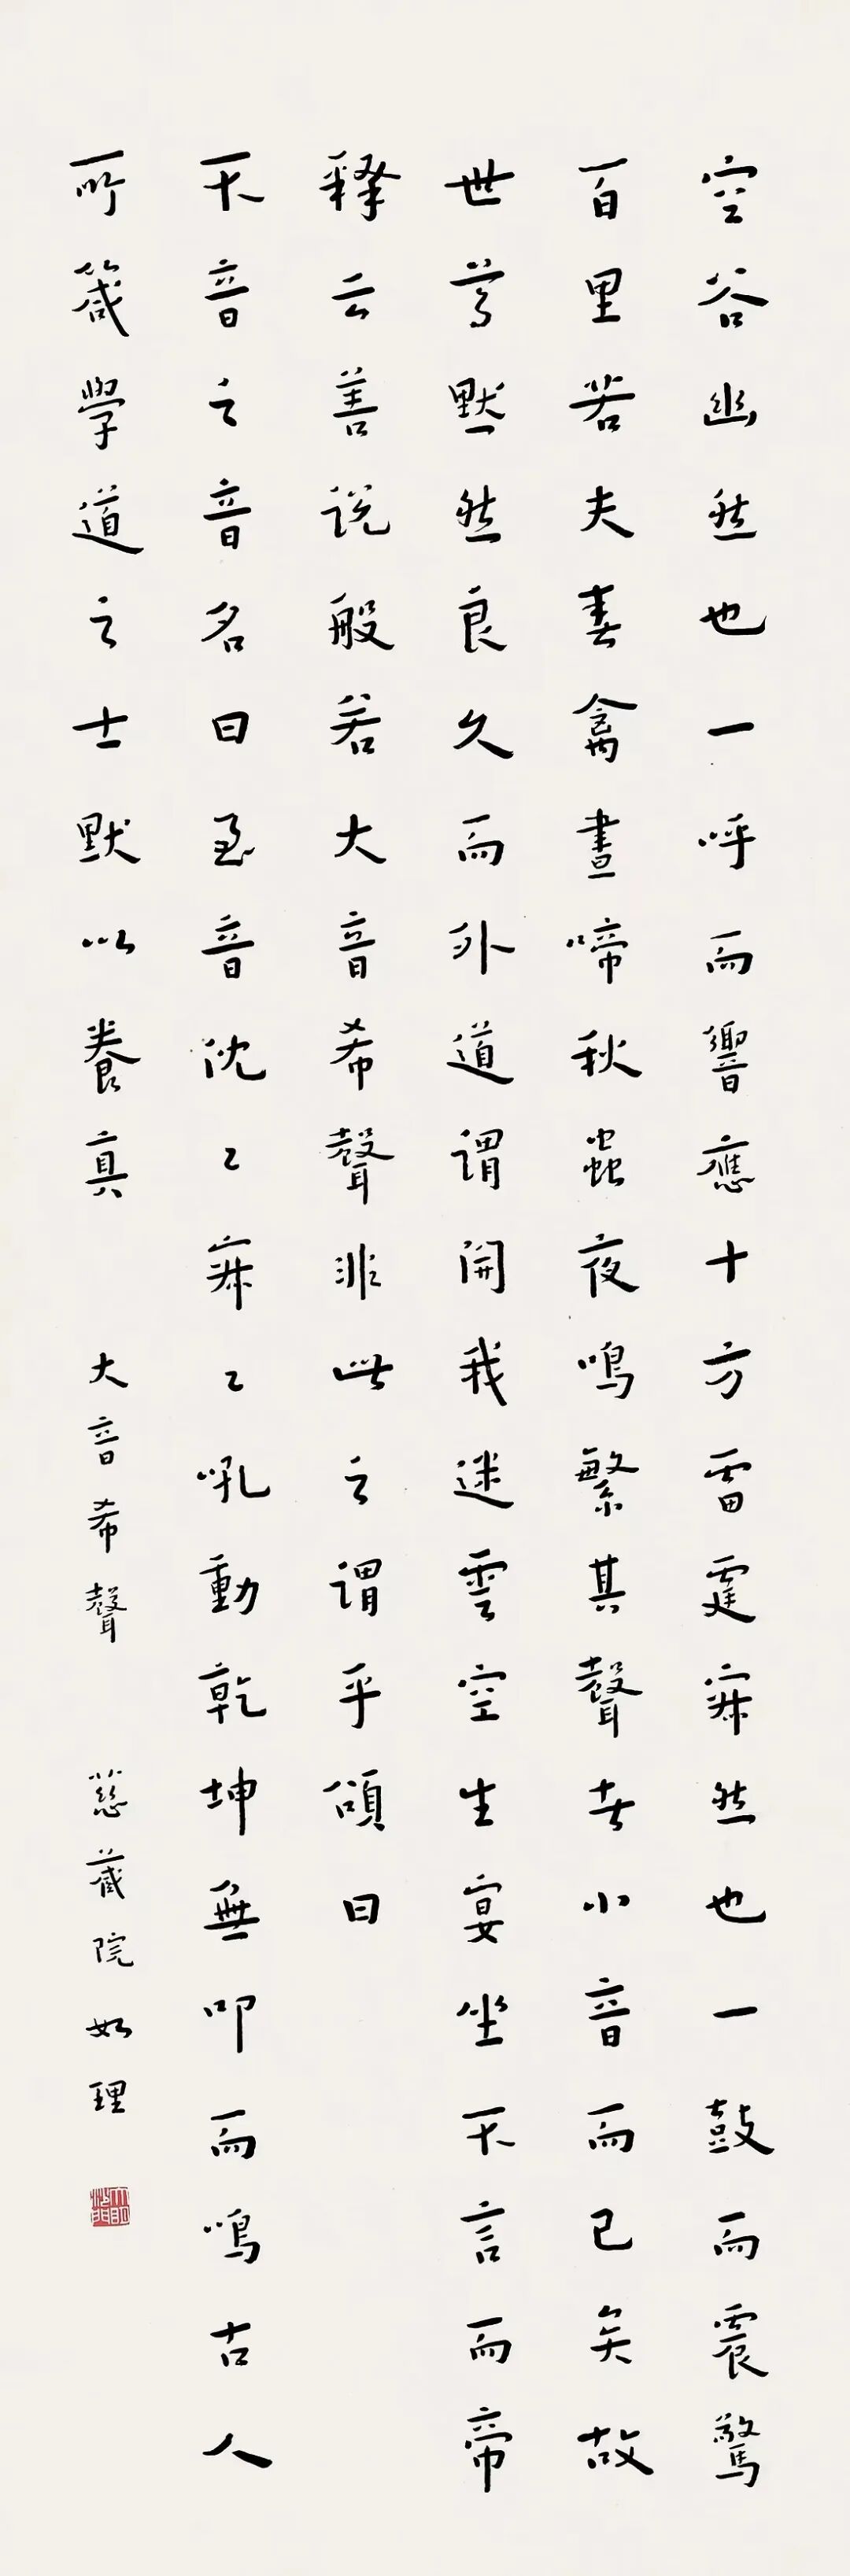 空谷幽然也一呼而響應十方雷霆寂然也一鼓而震驚
百里若夫春禽晝啼秋蟲夜鳴繁其聲者小音而已矣故
世尊默然良久而外道謂開我迷雲空生宴坐不言而帝
釋云善说般若大音希聲非此之谓乎頌曰
不音之音名曰至音沈々寂々吼動乾坤無叩而鳴古人
所箴學道之士默以養真 大音希聲 慈藏院如理